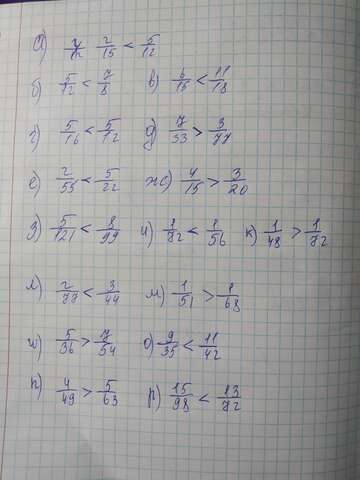 а) 2/15 < 5/12
б) 5/12 < 7/8 в) 6/15 < 11/18
г) 5/16 < 5/12 д) 7/33 > 3/77
е) 2/55 < 5/22 ж) 4/15 > 3/20
з) 5/121 < 8/99 и) 1/82 < 1/56 к) 1/48 > 1/82
л) 2/77 < 3/44 м) 1/51 > 1/68
н) 5/36 > 7/54 о) 9/35 < 11/42
п) 4/49 > 5/63 р) 15/98 < 13/82